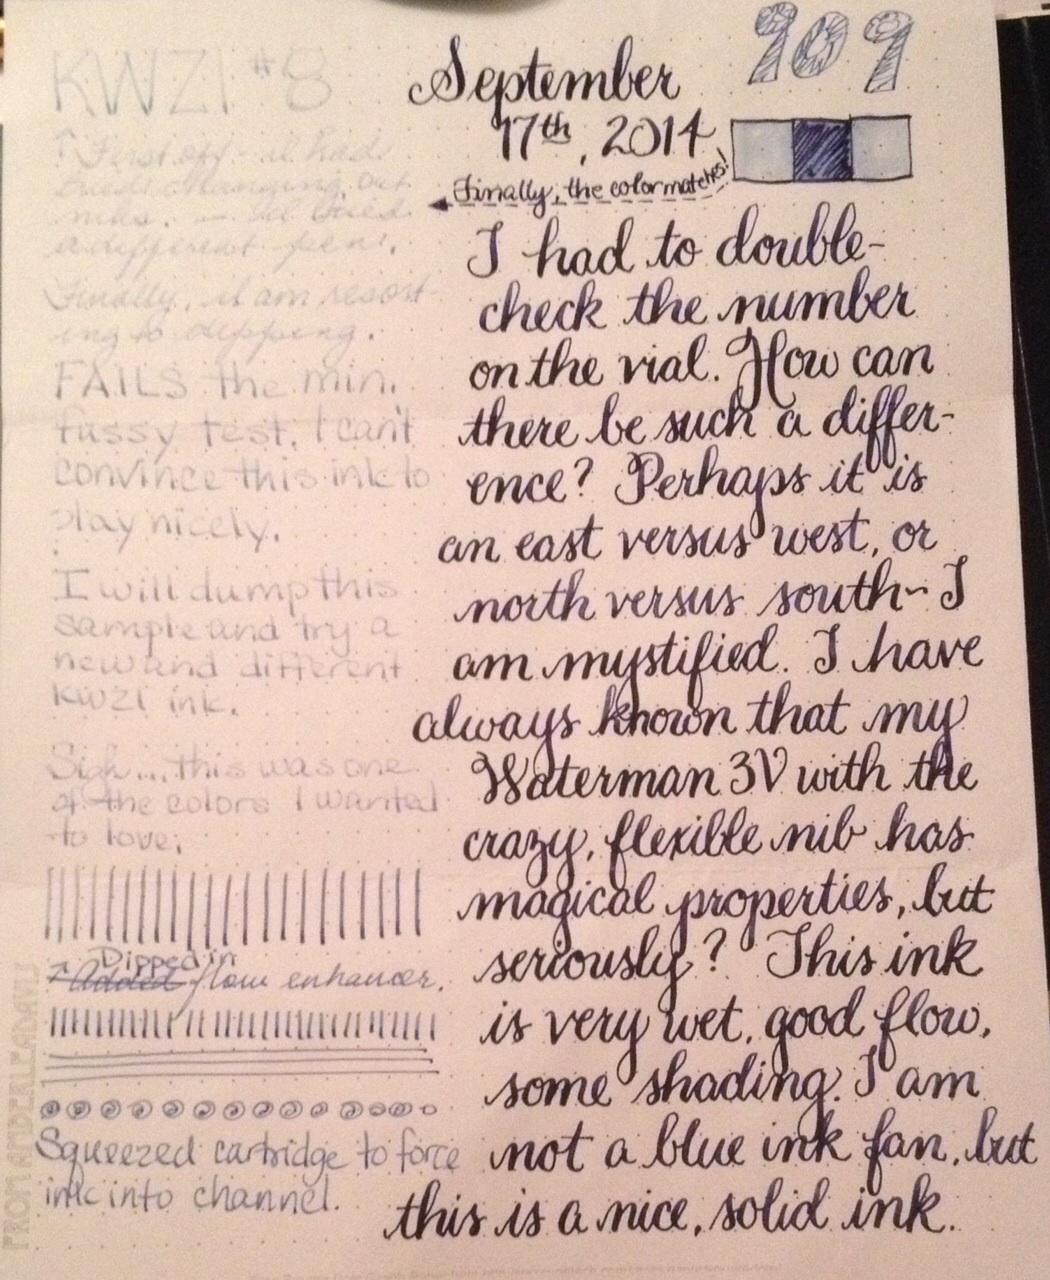 KWZI #8
↑ First off - I had
tried changing out
nibs. — I'd tried
a different pen.
Finally, I am resort-
ing to dipping.
FAILS the min.
fussy test. I can't
convince this ink to
play nicely.
I will dump this
sample and try a
new and different
KWZI ink.
Sigh... this was one
of the colors I wanted
to love.
Dipped in
↑ Added flow enhancer.
Squeezed cartridge to force
ink into channel.
FROM AMBERLEADAVIS
909
September
17th, 2014
Finally, the color matches!
I had to double-
check the number
on the vial. How can
there be such a differ-
ence? Perhaps it is
an east versus west, or
north versus south - I
am mystified. I have
always known that my
Waterman 3V with the
crazy, flexible nib has
magical properties, but
seriously? This ink
is very wet, good flow,
some shading. I am
not a blue ink fan, but
this is a nice, solid ink.